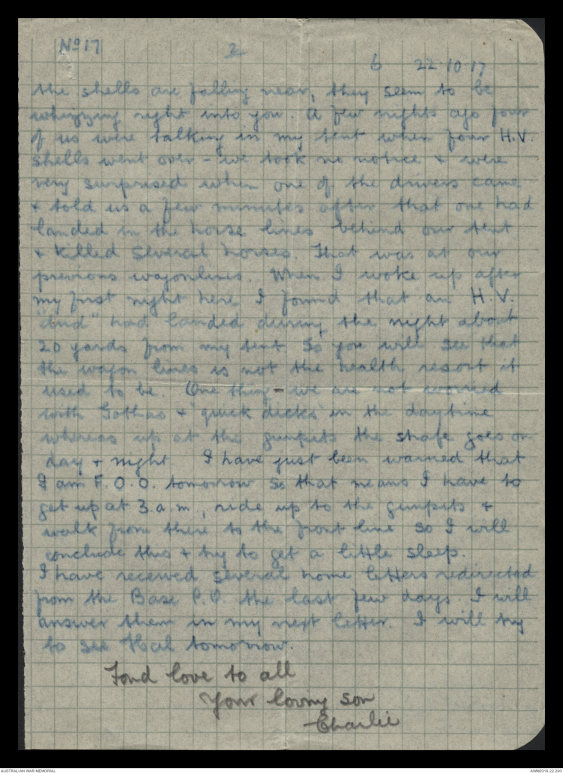 No 17
2
6 22.10.17
the shells are falling near, they seem to be
whizzing right into you. A few nights ago four
of us were talking in my tent when four H.V.
shells went over - we took no notice & were
very surprised when one of the drivers came
& told us a few minutes after that one had
landed in the horse lines behind our tent
& killed several horses. That was at our
previous wagonlines. When I woke up after
my first night here I found that an H.V.
"dud" had landed during the night about
20 yards from my tent. So you will see that
the wagon lines is not the health resort it
used to be. One thing - we are not worried
with Gothas & quick dicks in the daytime
whereas up at the gunpits the strafe goes on
day & night. I have just been warned that
I am F.O.O. tomorrow so that means I have to
get up at 3.a.m, ride up to the gunpits &
walk from there to the front line so I will
conclude this & try to get a little sleep.
I have received several home letters redirected
from the Base P.O. the last few days. I will
answer them in my next letter. I will try
to see Hal tomorrow.
Fond love to all
Your loving son
Charlie
AUSTRALIAN WAR MEMORIAL